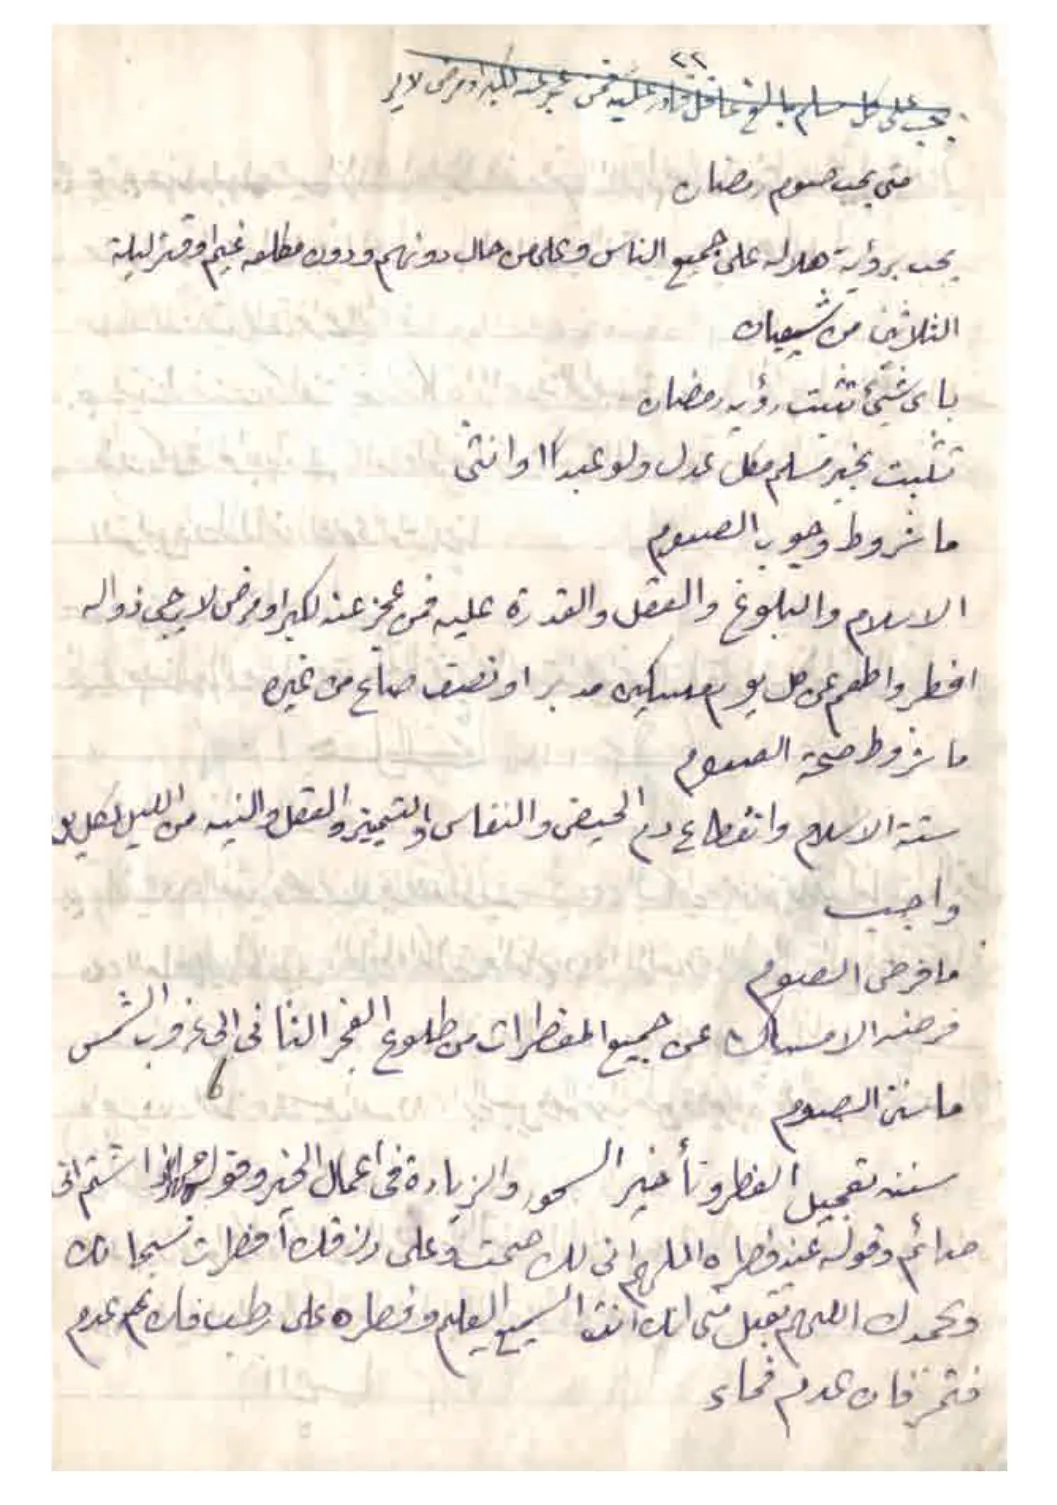 ٢٢
يجب على كل مسلم بالغ عاقل قادر عليه فمن عجز عنه لكبر او مرض لا ير
متى يجب صوم رمضان
يجب برؤية هلاله على جميع الناس وعلى من حال دونهم ودون مطلعه غيم او قتر ليلة
الثلاثين من شعبان
باى شيئ تثبت رؤية رمضان
تثبت بخبر مسلم مكلف عدل ولو عبدا او انثى
ما شروط وجوب الصوم
الاسلام والبلوغ والعقل والقدرة عليه فمن عجز عنه لكبر او مرض لا يرجى زواله
افطر واطعم عن كل يوم مسكين مد بر او نصف صاع من غيره
ما شروط صحة الصوم
ستة الاسلام وانقطاع دم الحيض والنفاس والتمييز والعقل والنية من الليل لكل يو
واجب
ما فرض الصوم
فرضه الامساك عن جميع المفطرات من طلوع الفجر الثانى الى غروب الشمس
ما سنن الصوم
سننه تعجيل الفطر وتأخير السحور والزيادة فى اعمال الخير وقوله شتم انى
صائم وقوله عند فطره اللهم انى لك صمت وعلى رزقك أفطرت سبحانك
وبحمدك اللهم تقبل منى انك انت السميع العليم وفطره على رطب فان عدم
فتمر فان عدم فماء